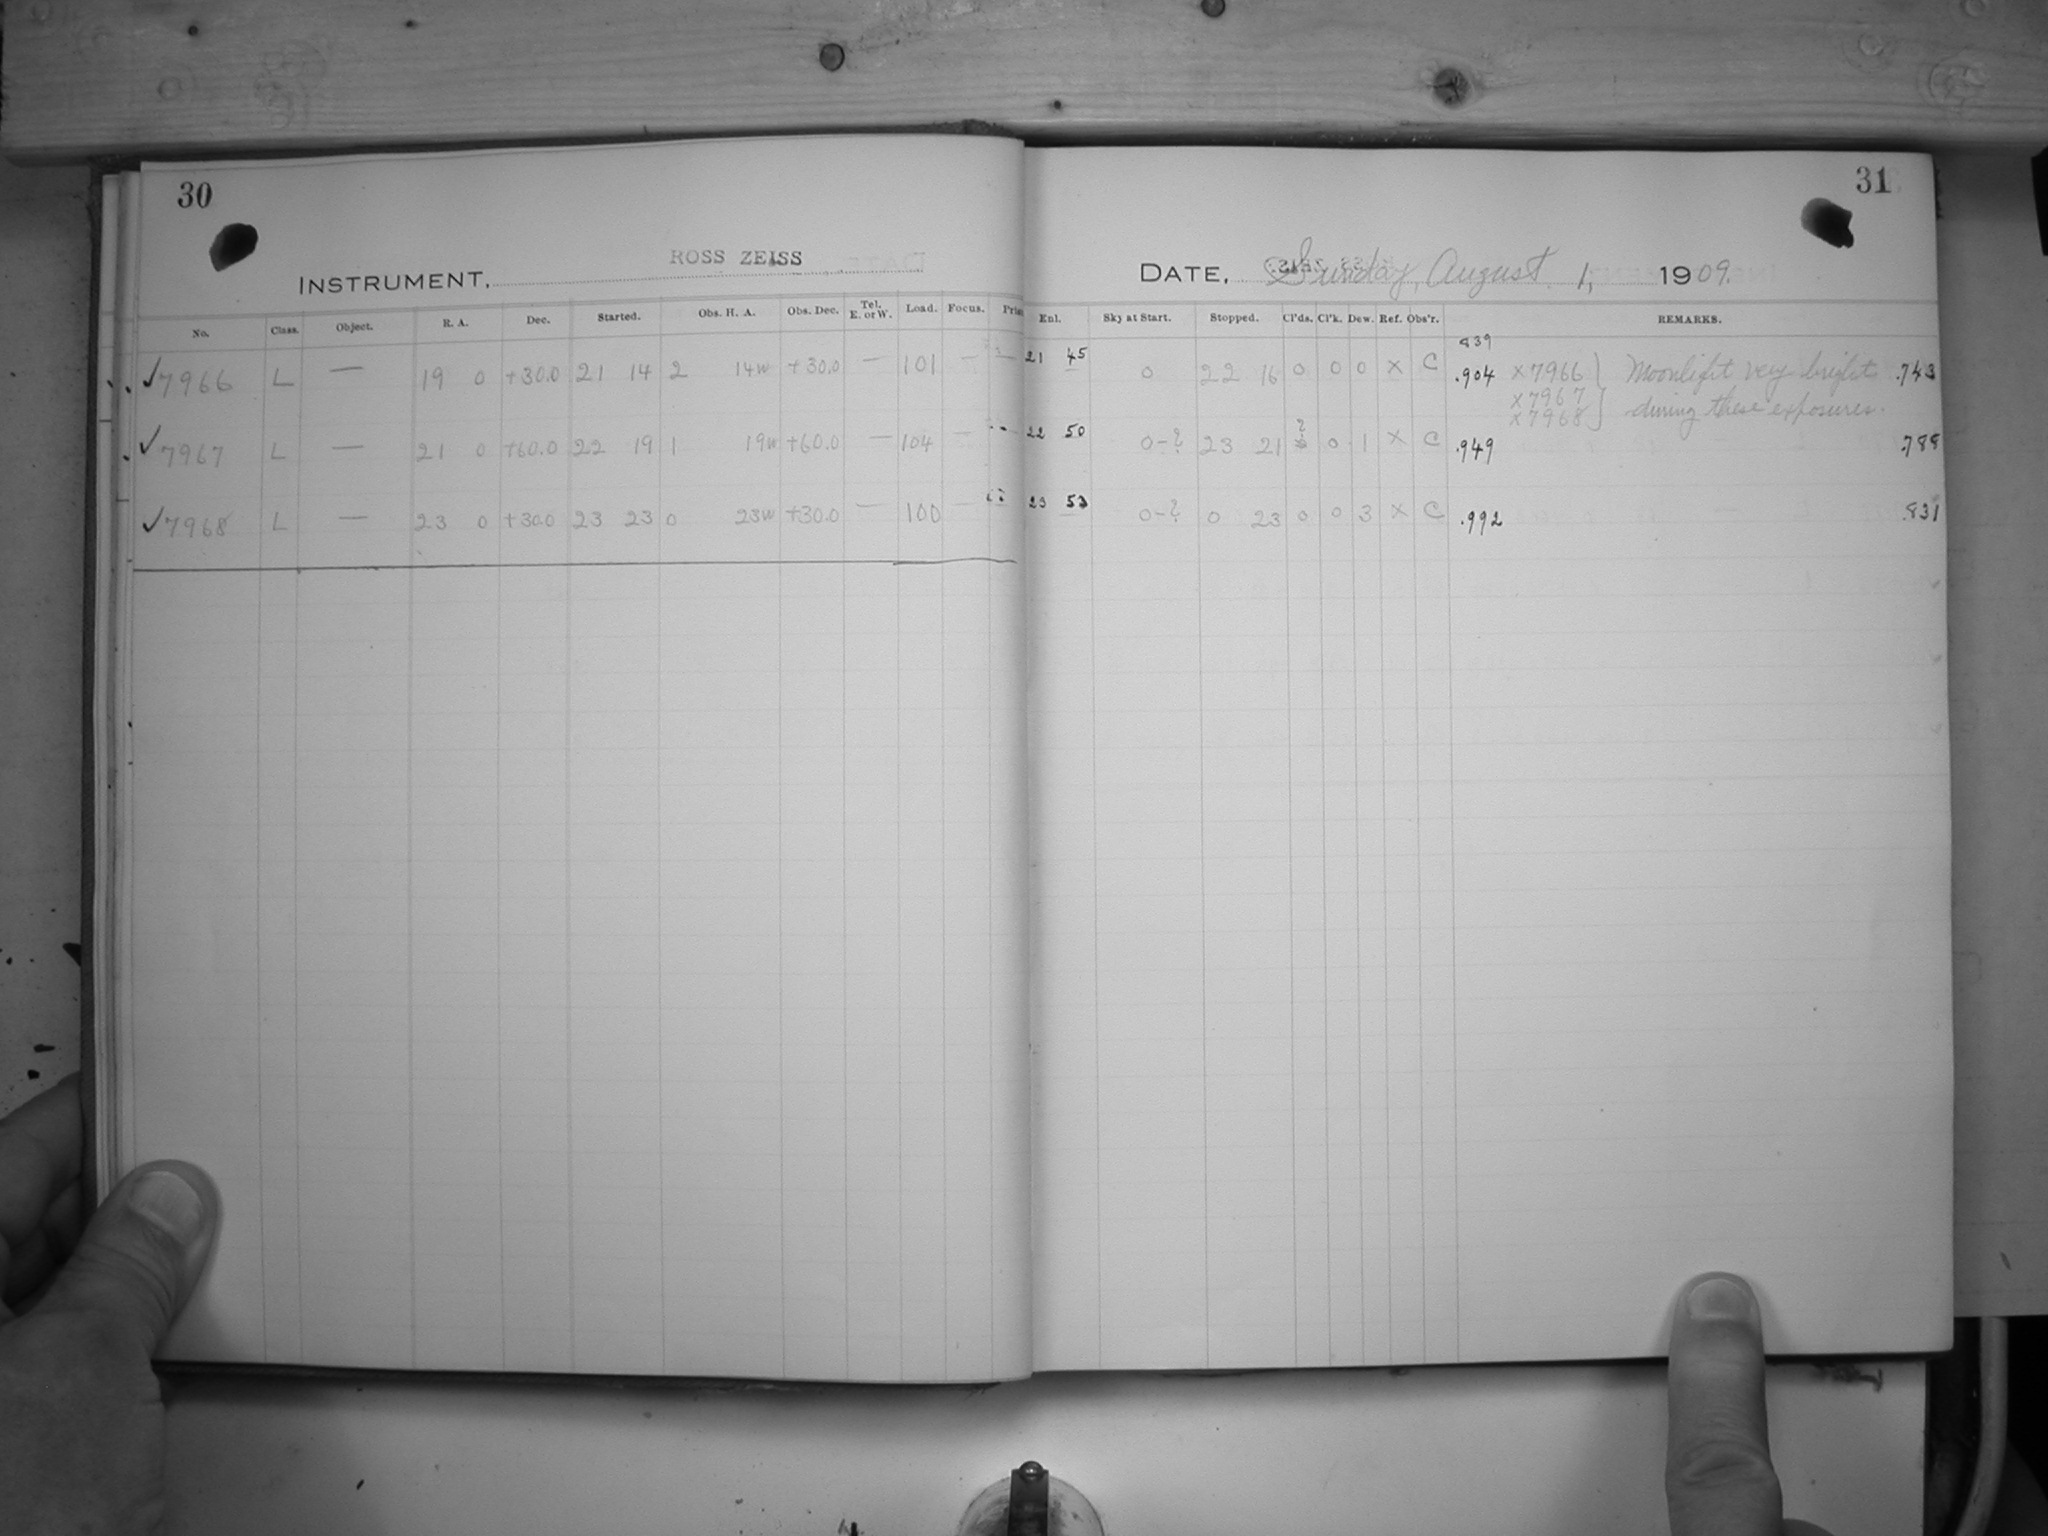 30
INSTRUMENT, ROSS ZEISS
No. Class. Object. R. A. Dec. Started. Obs. H. A. Obs. Dec. Tel. E. or W. Load. Focus.
✓7966 L — 19 0 +30.0 21 14 2 14w +30.0 — 101 —
✓7967 L — 21 0 +60.0 22 19 1 19w +60.0 — 104 —
✓7968 L — 23 0 +30.0 23 23 0 23w +30.0 — 100 —
31
DATE, Sunday, August 1, 1909.
Enl. Sky at Start. Stopped. Cl'ds. Cl'k. Dew. Ref. Obs'r. REMARKS.
839
21 45 0 22 16 0 0 0 X C .904 X 7966 } Moonlight very bright .743
X 7967
X 7968 } during these exposures.
22 50 0-? 23 21 ? 0 1 X C .949 .788
23 53 0-? 0 23 0 0 3 X C .992 .831